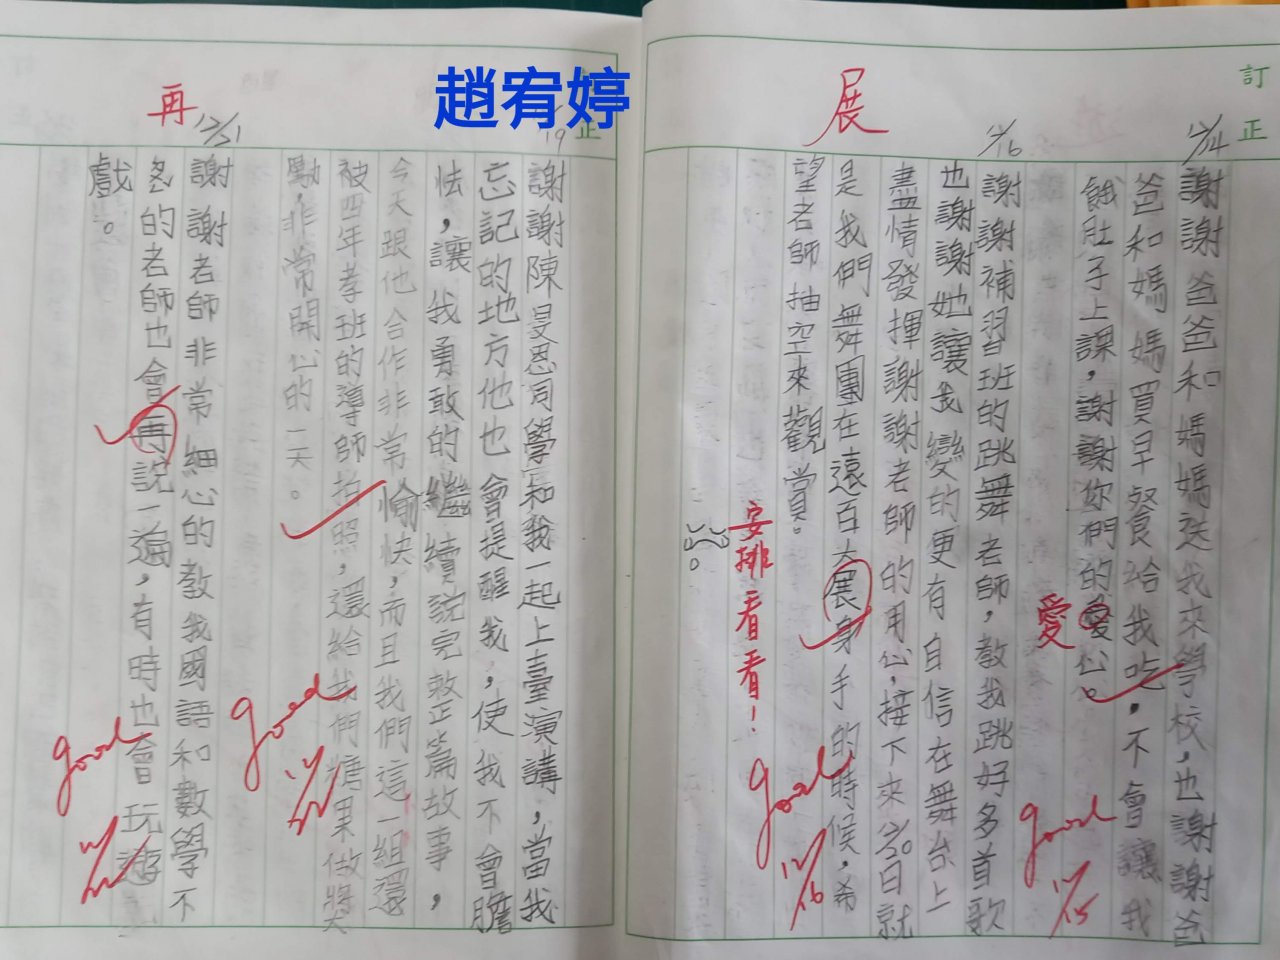 趙宥婷
訂正
12/14
謝謝爸爸和媽媽送我來學校,也謝謝爸
爸和媽媽買早餐給我吃,不會讓我
餓肚子上課,謝謝你們的愛心。
愛
good
12/15
12/16
謝謝補習班的跳舞老師,教我跳好多首歌
也謝謝她讓我變的更有自信在舞台上
盡情發揮謝謝老師的用心,接下來12/20日就
是我們舞團在遠百大展身手的時候,希
望老師抽空來觀賞。
展
安排看看!
good
12/16
正
19
謝謝陳旻恩同學和我一起上臺演講,當我
忘記的地方他也會提醒我,使我不會膽
怯,讓我勇敢的繼續說完整篇故事,
今天跟他合作非常愉快,而且我們這一組還
被四年孝班的導師拍照,還給我們糖果做獎
勵,非常開心的一天。
good
12/21
謝謝老師非常細心的教我國語和數學不
多的老師也會再說一遍,有時也會玩遊
戲。
再
good